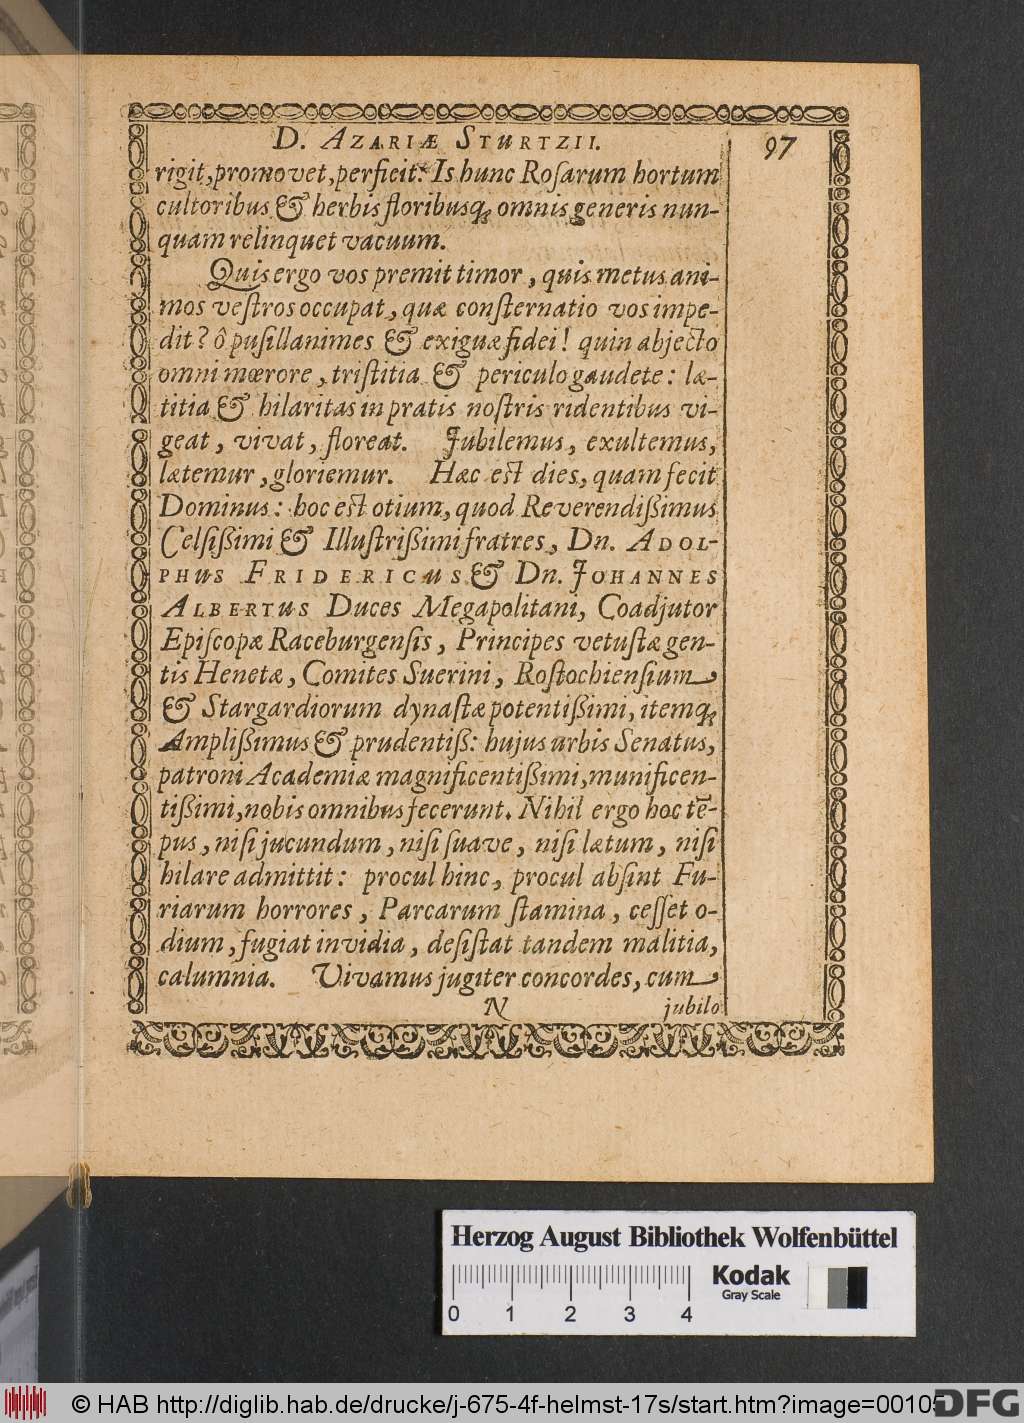 D. AZARIÆ STURTZII. 97
rigit, promovet, perficit: Is hunc Roſarum hortum
cultoribus & herbis floribusq; omnis generis nun-
quam relinquet vacuum.
Quis ergo vos premit timor, quis metus ani-
mos veſtros occupat, quæ conſternatio vos impe-
dit? ô puſillanimes & exiguæ fidei! quin abjecto
omni mœrore, triſtitia & periculo gaudete: læ-
titia & hilaritas in pratis noſtris ridentibus vi-
geat, vivat, floreat. Jubilemus, exultemus,
lætemur, gloriemur. Hæc eſt dies, quam fecit
Dominus: hoc eſt otium, quod Reverendißimus
Celſißimi & Illuſtrißimi fratres, Dn. ADOL-
PHUS FRIDERICUS & Dn. JOHANNES
ALBERTUS Duces Megapolitani, Coadjutor
Epiſcopæ Raceburgenſis, Principes vetuſtæ gen-
tis Henetæ, Comites Suerini, Roſtochienſium
& Stargardiorum dynaſtæ potentißimi, itemq;
Amplißimus & prudentiß: hujus urbis Senatus,
patroni Academiæ magnificentißimi, munificen-
tißimi, nobis omnibus fecerunt. Nihil ergo hoc tē-
pus, niſi jucundum, niſi ſuave, niſi lætum, niſi
hilare admittit: procul hinc, procul abſint Fu-
riarum horrores, Parcarum ſtamina, ceſſet o-
dium, fugiat invidia, deſiſtat tandem malitia,
calumnia. Vivamus jugiter concordes, cum
N jubilo
Herzog August Bibliothek Wolfenbüttel
Kodak
Gray Scale
0 1 2 3 4
© HAB http://diglib.hab.de/drucke/j-675-4f-helmst-17s/start.htm?image=00105
DFG